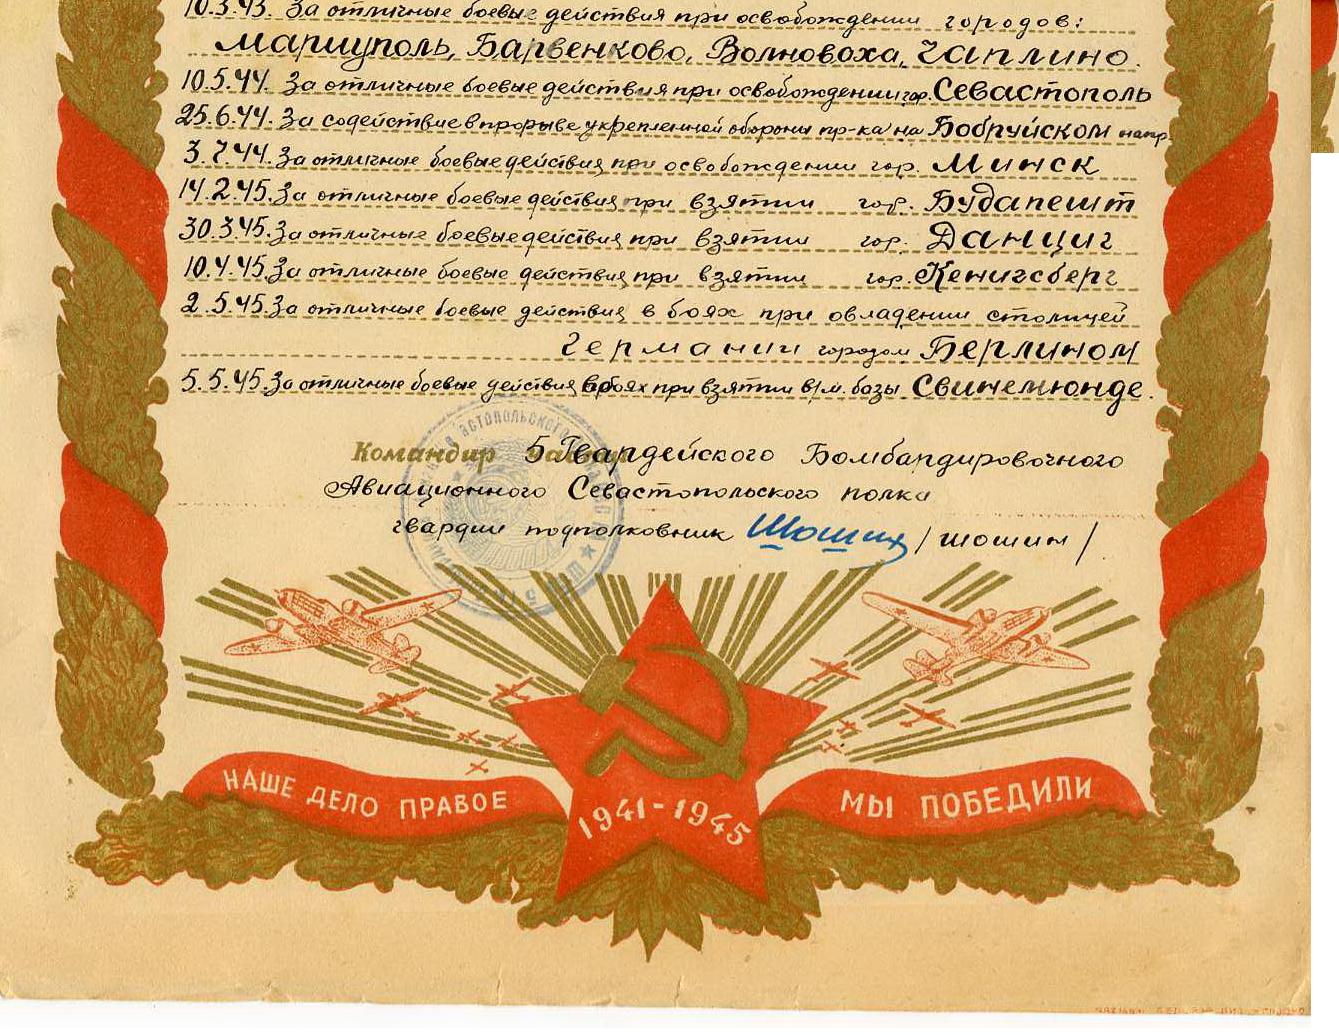 10.3.43. За отличные боевые действия при освобождении городов:
Мариуполь, Барвенково, Волноваха, Чаплино.
10.5.44. За отличные боевые действия при освобождении гор. Севастополь
25.6.44. За содействие в прорыве укрепленной обороны пр-ка на Бобруйском напр.
3.7.44. За отличные боевые действия при освобождении гор. Минск
14.2.45. За отличные боевые действия при взятии гор. Будапешт
30.3.45. За отличные боевые действия при взятии гор. Данциг
10.4.45. За отличные боевые действия при взятии гор. Кенигсберг
2.5.45. За отличные боевые действия в боях при овладении столицей
Германии городом Берлином
5.5.45. За отличные боевые действия в боях при взятии в/м. базы Свинемюнде.
Командир части 5 Гвардейского Бомбардировочного
Авиационного Севастопольского полка
гвардии подполковник Шошин /шошин/
НАШЕ ДЕЛО ПРАВОЕ
МЫ ПОБЕДИЛИ
1941-1945